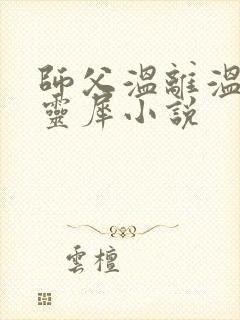 師父溫離溫
靈犀小說
雲檀